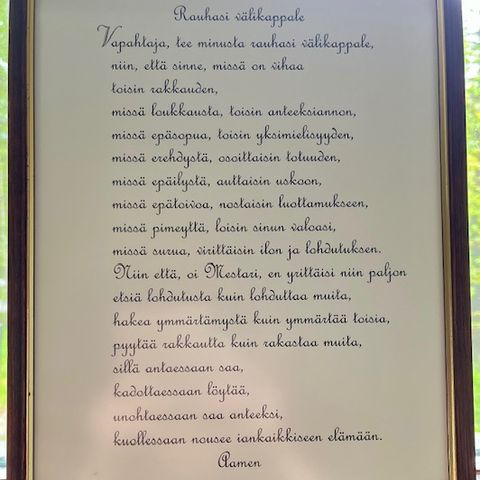 Rauhasi välikappale
Vapahtaja, tee minusta rauhasi välikappale,
niin, että sinne, missä on vihaa
toisin rakkauden,
missä loukkausta, toisin anteeksiannon,
missä epäsopua, toisin yksimielisyyden,
missä erehdystä, osoittaisin totuuden,
missä epäilystä, auttaisin uskoon,
missä epätoivoa, nostaisin luottamukseen,
missä pimeyttä, loisin sinun valoasi,
missä surua, virittäisin ilon ja lohdutuksen.
Niin että, oi Mestari, en yrittäisi niin paljon
etsiä lohdutusta kuin lohduttaa muita,
hakea ymmärtämystä kuin ymmärtää toisia,
pyytää rakkautta kuin rakastaa muita,
sillä antaessaan saa,
kadottaessaan löytää,
unohtaessaan saa anteeksi,
kuollessaan nousee iankaikkiseen elämään.
Aamen